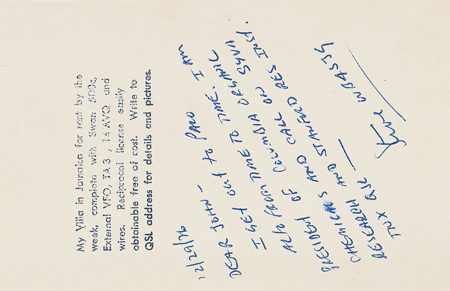 My Villa in Jamaica for rent by the
week, complete with Swan 500c,
External VFO, TA 3, 14 AVQ and
wires. Reciprocal license easily
obtainable free of cost. Write to
QSL address for details and pictures.
12/29/76
DEAR JOHN—
I GET OUT TO PALO
ALTO FROM TIME TO TIME. I AM
PRESIDENT OF COLUMBIA ORGANIC
CHEMICALS AND CALL ON SYVA
RESEARCH AND STANFORD RES INST.
TNX QSL —